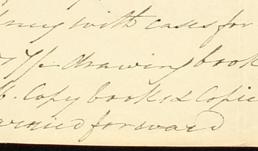 with cases for
drawing book
Copy books & Copie
carried forward